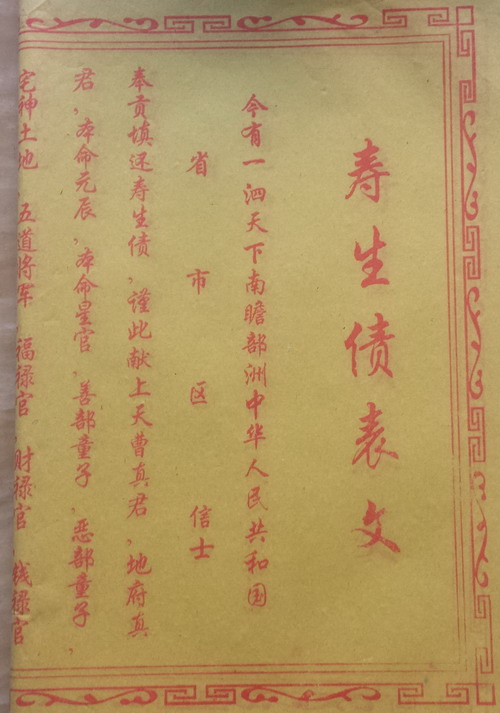 寿生债表文
今有一泗天下南瞻部洲中华人民共和国
省 市 区 信士
奉贡填还寿生债，谨此献上天曹真君，地府真
君，本命元辰，本命皇官，善部童子，恶部童子
宅神土地 五道将军 福禄官 财禄官 钱禄官